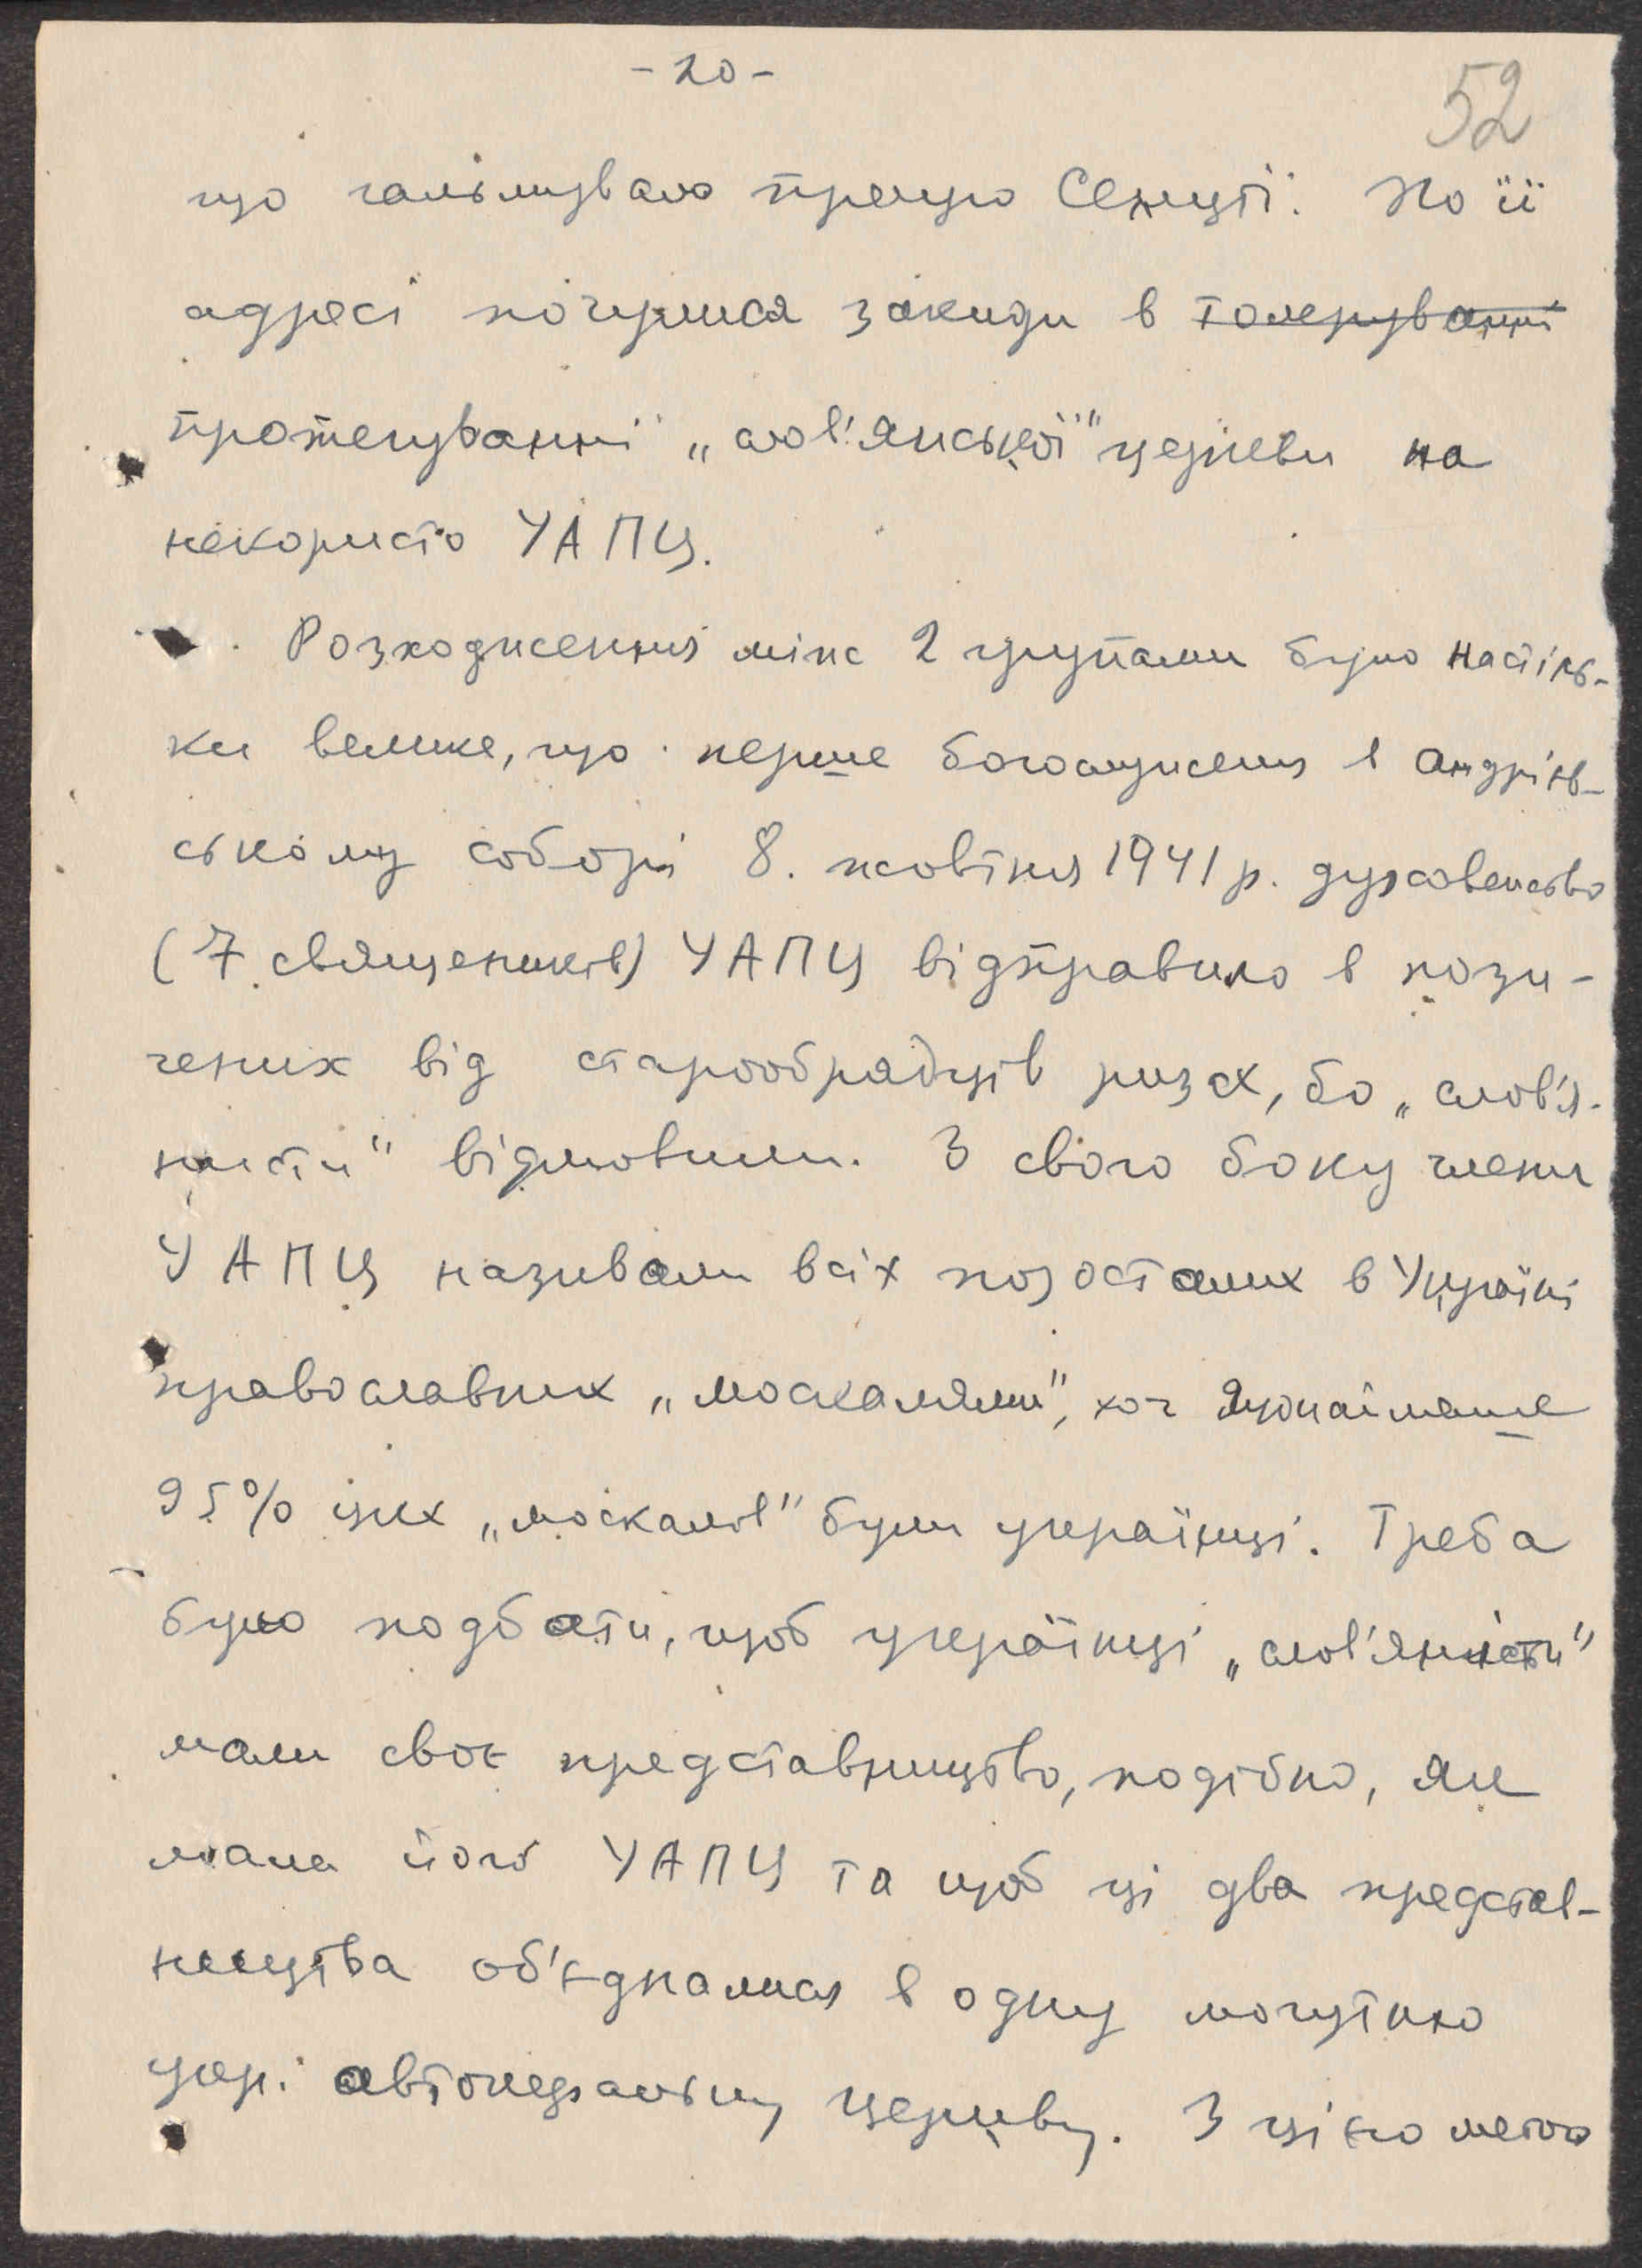 - 20 -
52
що гальмувало працю Секції. По її
адресі почулися закиди в толеруванні
протегуванні „слов'янської" церкви на
некористь УАПЦ.
Розходження між 2 групами було настіль-
ки велике, що перше богослуження в Андріїв-
ському соборі 8. жовтня 1941 р. духовенство
(7 священиків) УАПЦ відправило в пози-
чених від старообрядців ризах, бо „слов'я-
нисти" відмовили. З свого боку члени
УАПЦ називали всіх позосталих в Україні
православних „москалями", хоч щонайменше
95% цих „москалів" були українці. Треба
було подбати, щоб українці „слов'янисти"
мали своє представництво, подібно, як
мала його УАПЦ та щоб ці два представ-
ництва об'єдналися в одну могутню
укр. автокефальну церкву. З цією метою